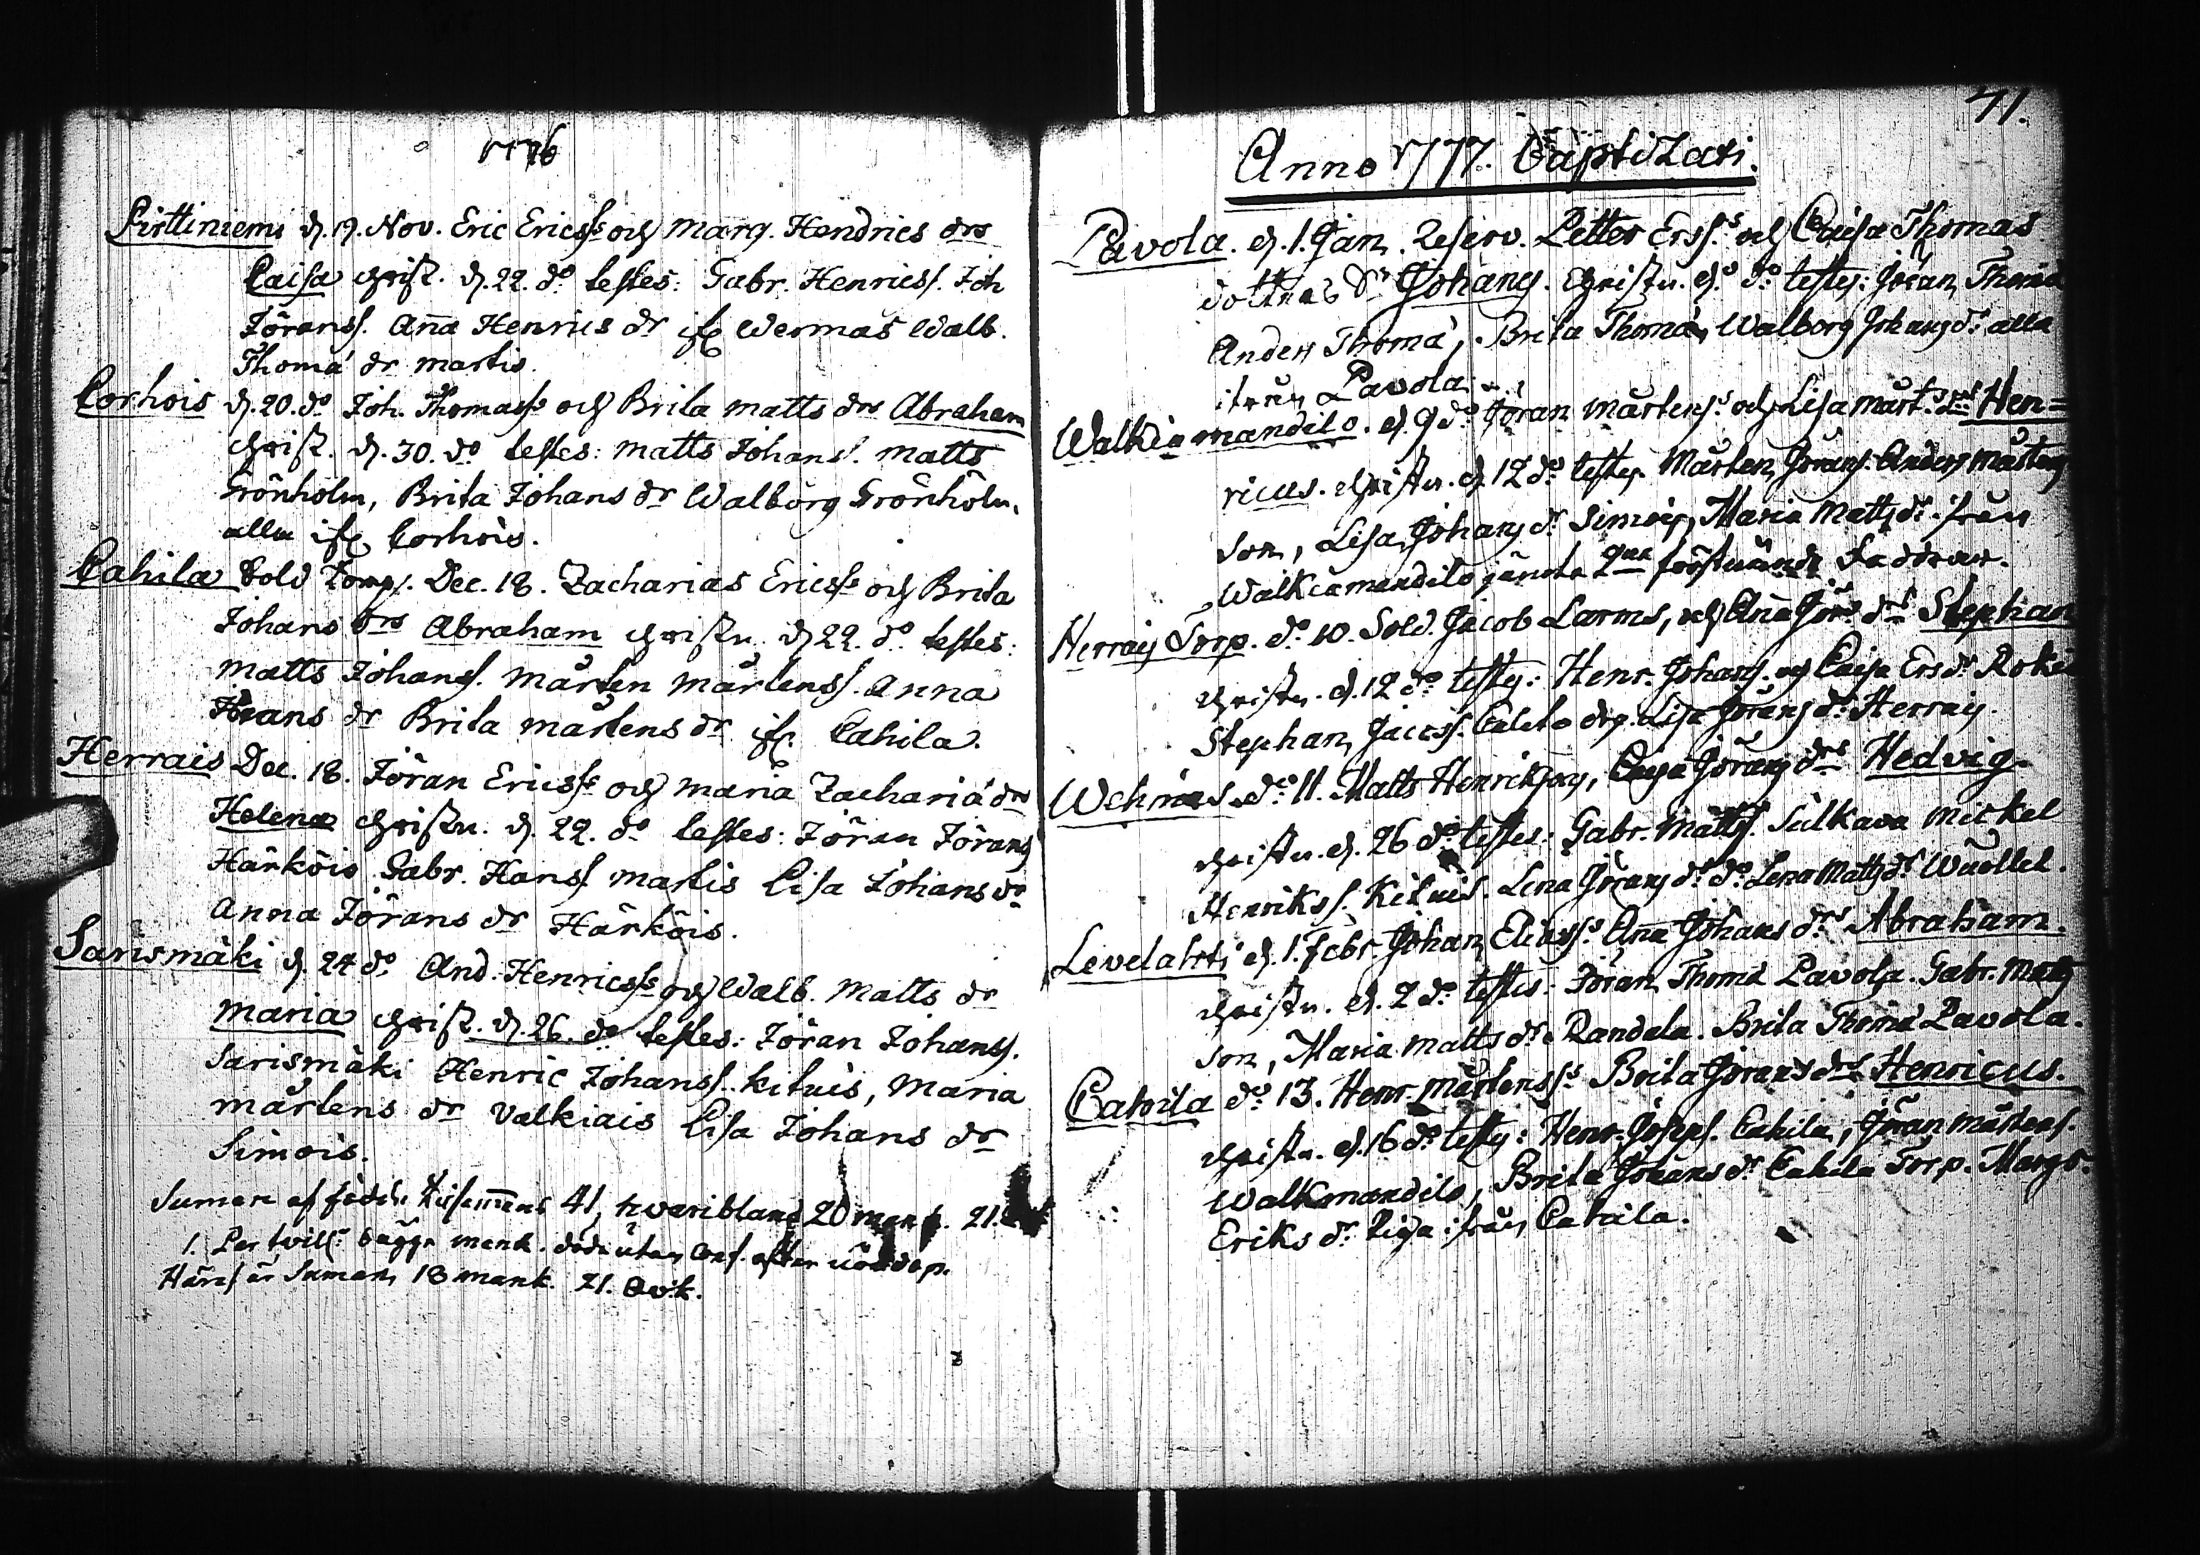 1776
Pirttiniemi d. 19. Nov. Eric Ericss:s och Marg. Hendrics drs
Caisa christ. d. 22. do testes: Gabr. Henricss. Joh
Jöranss. Aña Henrics dr ifr Wermas Walb.
Thomæ dr martis.
Corhois d. 20. do Joh. Thomass:s och Brita Matts drs Abraham
christ. d. 30. do testes: Matts Johans. Matts
Grönholm, Brita Johans dr Walborg Grönholm.
alla ifr Corhois.
Cahila Sold Torp. Dec. 18. Zacharias Ericss:s och Brita
Johans drs Abraham christn. d. 22. do testes:
Matts Johanss. Mårten Mårtenss. Anna
Jörans dr Brita Mårtens dr ifr Cahila.
Herrais Dec. 18. Jöran Ericss:s och Maria Zachariæ drs
Helena christn. d. 22. do testes: Jöran Jörans
Härköis Gabr. Hanss Martis Lisa Johans dr
Anna Jörans dr Härköis.
Sarismäki d. 24 do And. Henricss:s och Walb. Matts dr
Maria christ. d. 26. do testes: Jöran Johanss.
Sarismäki Henric Johanss. Kituis, Maria
Mårtens dr Valkiais Lisa Johans dr
Simois.
Suman af födde 41, hwaribland 20 mank. 21.
1. Par twill: bägge mank. döde utan efter nöddop.
Häraf är Suman 18 mank. 21. Qvk.
71.
Anno 1777. Baptizati.
Pavola. d. 1. Jan. Reserv. Petter Erss:s och Caisa Thomas
dottres Sn Johans. Christn. d. do testes: Jöran Thomæ
Anders Thomæ, Brita Thomæ, Walborg Johans dr alla
ifrån Pavola.
Walkiamandilo. d. 9 do Jöran Mårtenss:s och Lisa Mårt. drs Hen=
ricus. christn. d. 12 do testes Mårten Jörans. Anders Mårtens
son, Lisa Johans dr Simois, Maria Matts dr ifrån
Walkiamandilo jämte 2ne förstnämde Faddrar.
Herrais Torp. do 10. Sold. Jacob Larms, och Aña Jör. drs Stephan
christn. d. 12 do testes: Henr. Johans. och Caisa Ers dr
Stephan Jacoss. Lisa Jörans dr Herrais.
Wehmas. do 11. Matts Henrikssons, Caisa Jörans drs Hedvig.
christn. d. 26 do testes: Gabr. Matts. Sulkava Mickel
Henrikss. Kituis. Lena Jörans dr do. Lena Matts dr
Levelahti d. 1. Febr. Johan Eliæss:s Aña Johans drs Abraham.
christn. d. 2 do testes: Jöran Thomæ Pavola. Gabr. Matts
son, Maria Matts dr Randala. Brita Thomæ Pavola.
Cahila do 13. Henr. Mårtenss:s Brita Jörans drs Henricus.
christn. d. 16 do testes: Henr. Joseps. Cahila, Jöran Mårtens.
Walkmandilo, Brita Johans dr Cahila Torp. Margr.
Eriks dr Piga ifrån Cahila.